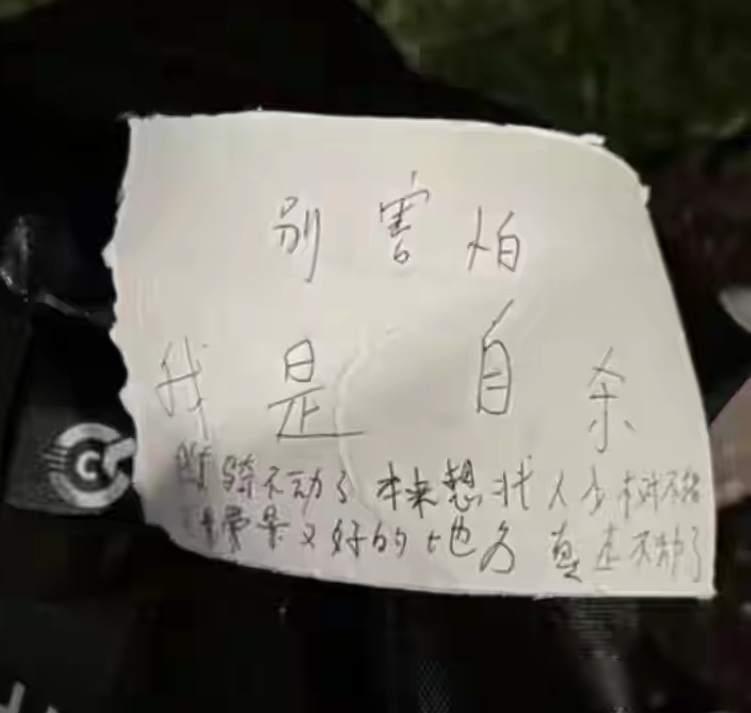 别害怕
我是自杀
骑不动了 本来想找人少 树不错
景又好的地方 真走不动了